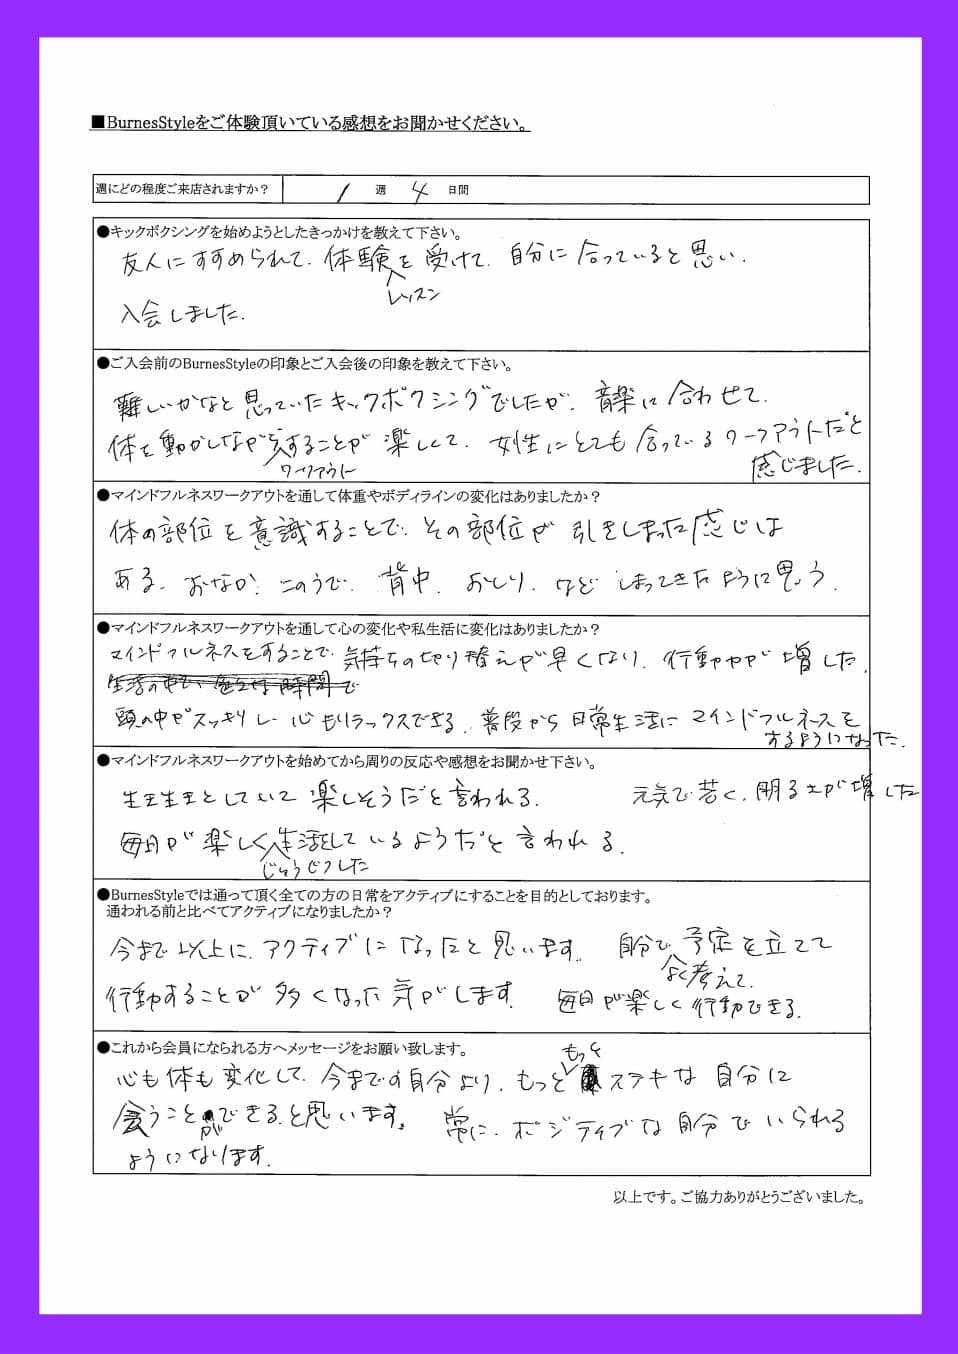 ■BurnesStyleをご体験頂いている感想をお聞かせください。
週にどの程度ご来店されますか? 1 週 4 日間
●キックボクシングを始めようとしたきっかけを教えて下さい。
友人にすすめられて、体験レッスンを受けて、自分に合っていると思い、
入会しました。
●ご入会前のBurnesStyleの印象とご入会後の印象を教えて下さい。
難しいかなと思っていたキックボクシングでしたが、音楽に合わせて、
体を動かしながらワークアウトすることが楽しくて、女性にとても合っているワークアウトだと
感じました。
●マインドフルネスワークアウトを通して体重やボディラインの変化はありましたか?
体の部位を意識することで、その部位が引きしまった感じは
ある。おなか、二のうで、背中、おしり、などしまってきたように思う。
●マインドフルネスワークアウトを通して心の変化や私生活に変化はありましたか?
マインドフルネスをすることで、気持ちの切り替えが早くなり、行動力が増した。
頭の中がスッキリし、心もリラックスできる。普段から日常生活にマインドフルネースを
するようになった。
●マインドフルネスワークアウトを始めてから周りの反応や感想をお聞かせ下さい。
生き生きとしていて楽しそうだと言われる。 元気で若く、明るさが増した
毎日が楽しくじゅうじつした生活をしているようだと言われる。
●BurnesStyleでは通って頂く全ての方の日常をアクティブにすることを目的としております。
通われる前と比べてアクティブになりましたか?
今まで以上に、アクティブになったと思います。自分でよく考えて、予定を立てて
行動することが多くなった気がします。毎日が楽しく行動できる。
●これから会員になられる方へメッセージをお願い致します。
心も体も変化して、今までの自分より、もっともっとステキな自分に
会うことができると思います。常に、ポジティブな自分でいられる
ようになります。
以上です。ご協力ありがとうございました。